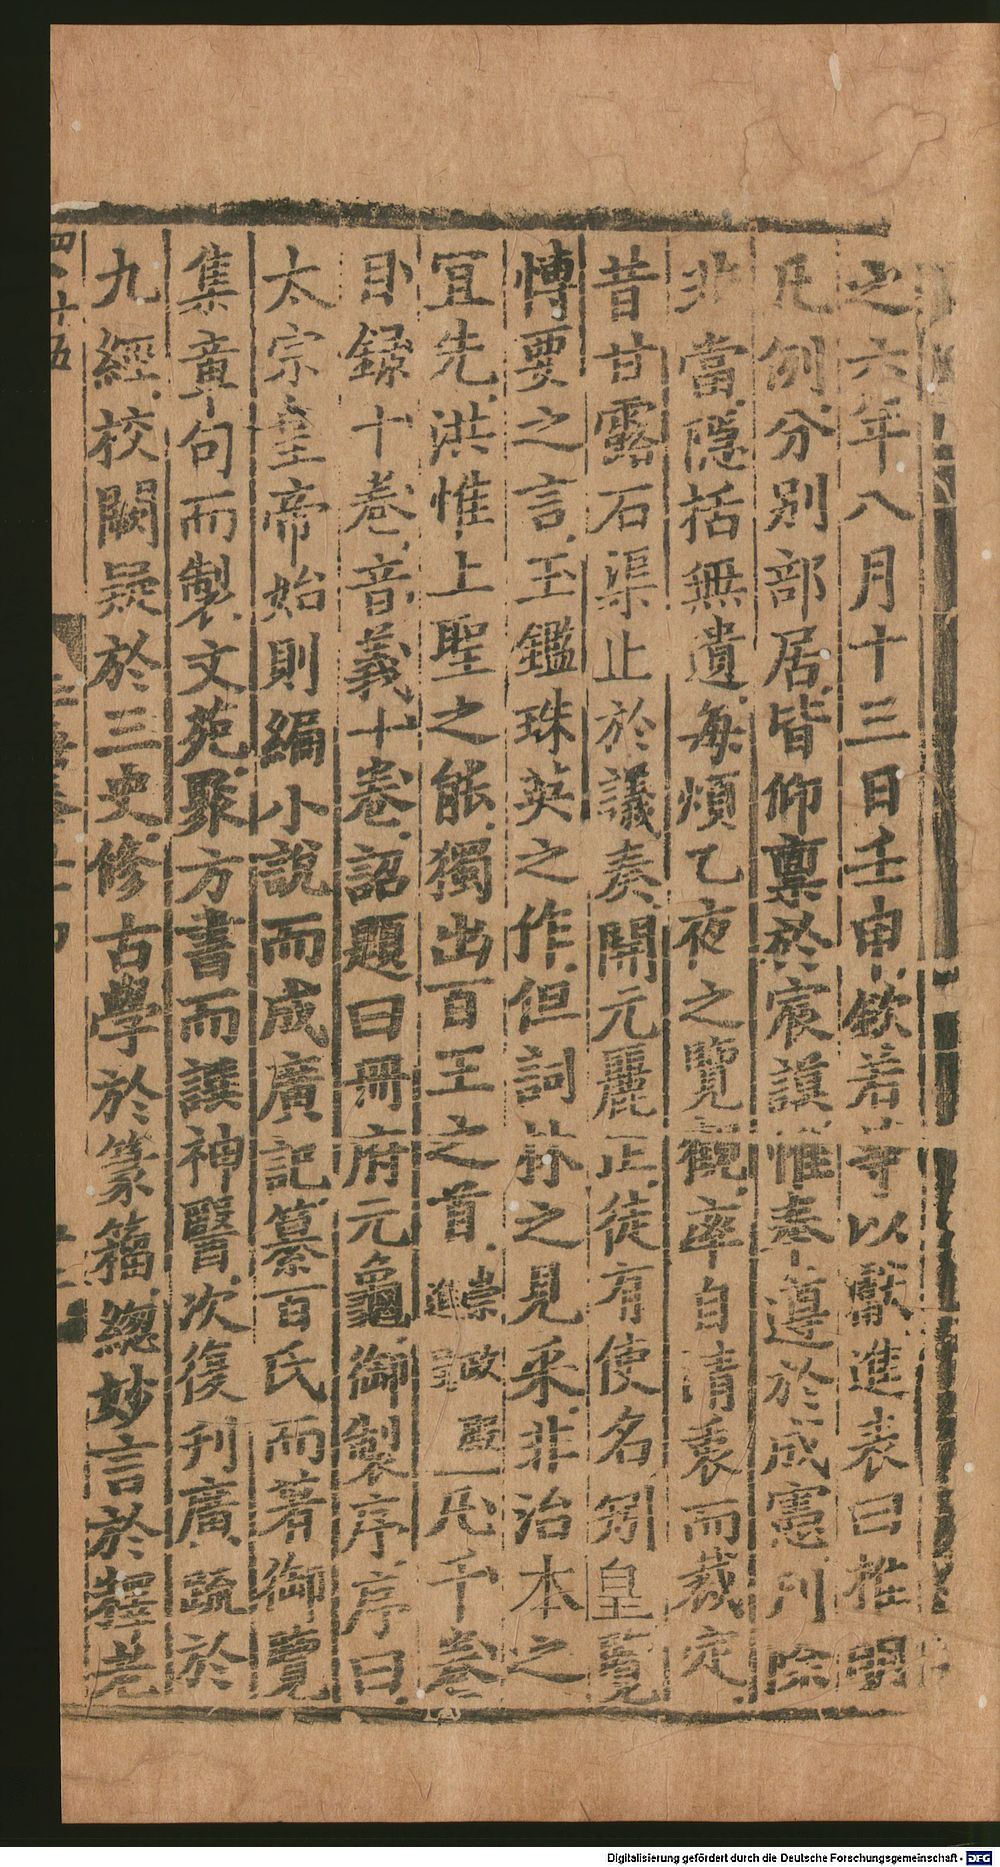 之六年八月十三日壬申欽若等以獻進表曰推明
凡例分別部居皆仰稟於宸謨惟奉遵於成憲刋除
非當隱括無遺每煩乙夜之覽觀率自清衷而裁定
昔甘露石渠止於議奏開元麗正徒有使名矧皇覽
博要之言玉鑑珠英之作但詞林之見采非治本之
冝先洪惟上聖之能獨出百王之首 凡千卷
目録十卷音義十卷詔題曰冊府元龜御製序序曰
太宗皇帝始則編小說而成廣記纂百氏而著御覽
集章句而製文苑聚方書而譔神醫次復刋廣疏於
九經校闕疑於三史修古學於篆籀緫妙言於釋老
四百十五
Digitalisierung gefördert durch die Deutsche Forschungsgemeinschaft - DFG